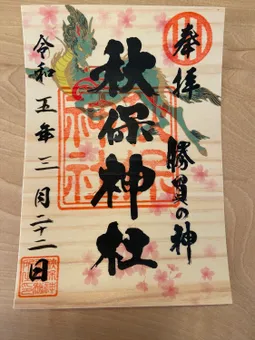 奉拝
勝負の神
秋保神社
令和五年三月二十二日